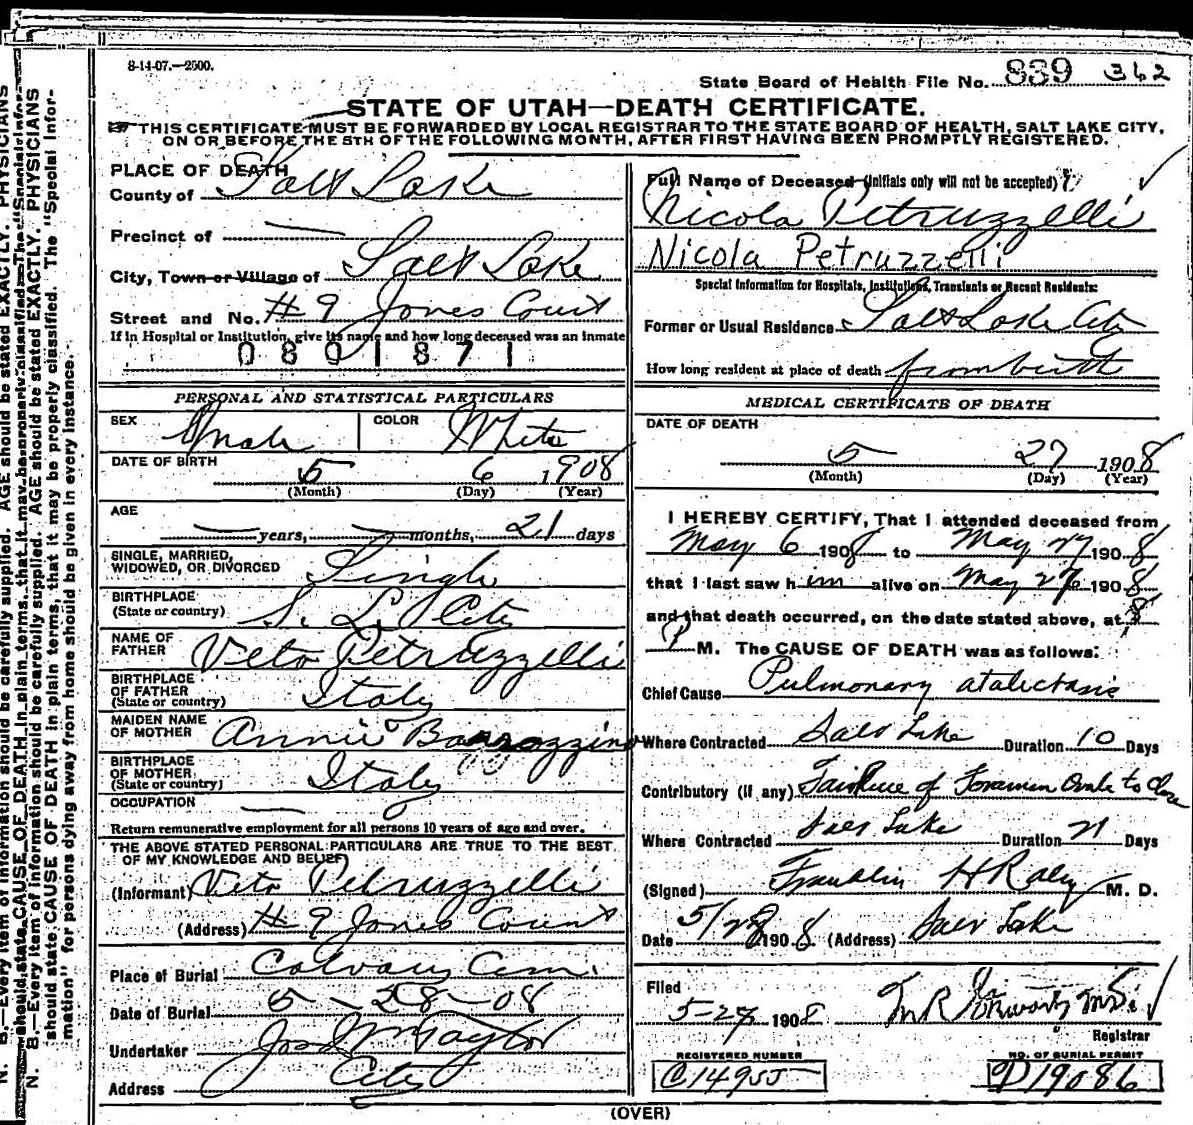 8-14-07.—2500.
State Board of Health File No. 839 362
STATE OF UTAH—DEATH CERTIFICATE.
THIS CERTIFICATE MUST BE FORWARDED BY LOCAL REGISTRAR TO THE STATE BOARD OF HEALTH, SALT LAKE CITY,
ON OR BEFORE THE 5TH OF THE FOLLOWING MONTH, AFTER FIRST HAVING BEEN PROMPTLY REGISTERED.
PLACE OF DEATH
County of Salt Lake
Precinct of —
City, Town or Village of Salt Lake
Street and No. #9 Jones Court
If in Hospital or Institution, give its name and how long deceased was an inmate
0801871
PERSONAL AND STATISTICAL PARTICULARS
SEX Male COLOR White
DATE OF BIRTH 5 6 1908
(Month) (Day) (Year)
AGE
— years, — months, 21 days
SINGLE, MARRIED,
WIDOWED, OR DIVORCED Single
BIRTHPLACE
(State or country) S. L. City
NAME OF
FATHER Veto Petruzzelli
BIRTHPLACE
OF FATHER
(State or country) Italy
MAIDEN NAME
OF MOTHER Annie
BIRTHPLACE
OF MOTHER
(State or country) Italy
OCCUPATION —
Return remunerative employment for all persons 10 years of age and over.
THE ABOVE STATED PERSONAL PARTICULARS ARE TRUE TO THE BEST
OF MY KNOWLEDGE AND BELIEF
(Informant) Veto Petruzzelli
(Address) #9 Jones Court
Place of Burial Calvary Cem.
Date of Burial 5-28-08
Undertaker Jos Wm Taylor
Address City
Full Name of Deceased (Initials only will not be accepted)
Nicola Petruzzelli
Nicola Petruzzelli
Special Information for Hospitals, Institutions, Transients or Recent Residents:
Former or Usual Residence Salt Lake City
How long resident at place of death from birth
MEDICAL CERTIFICATE OF DEATH
DATE OF DEATH
5 27 1908
(Month) (Day) (Year)
I HEREBY CERTIFY, That I attended deceased from
May 6 1908 to May 27 1908
that I last saw him alive on May 27 1908
and that death occurred, on the date stated above, at 8
P M. The CAUSE OF DEATH was as follows:
Chief Cause Pulmonary atalectasis
Where Contracted Salt Lake Duration 10 Days
Contributory (if any) Failure of Foramen Ovale to Close
Where Contracted Salt Lake Duration 21 Days
(Signed) Franklin H Raley M. D.
Date 5/28 1908 (Address) Salt Lake
Filed
5-27 1908
Registrar
REGISTERED NUMBER NO. OF BURIAL PERMIT
C14955 D19086
(OVER)
N. B.—Every item of information should be carefully supplied. AGE should be stated EXACTLY. PHYSICIANS
should state CAUSE OF DEATH in plain terms, that it may be properly classified. The "Special Infor-
mation" for persons dying away from home should be given in every instance.